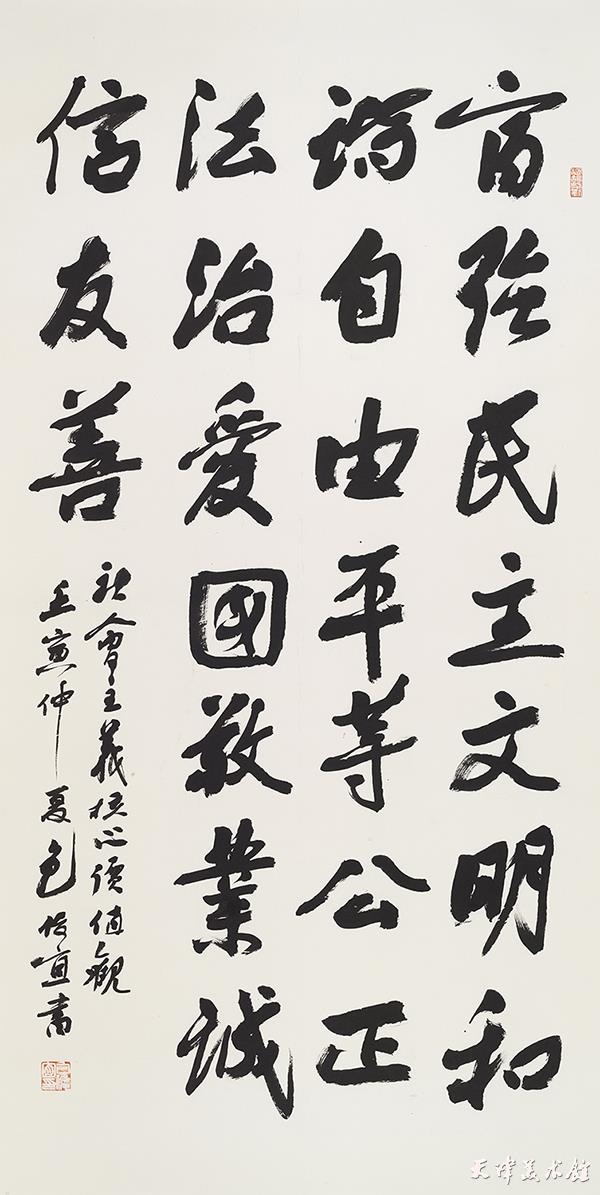 富强民主文明和
諧自由平等公正
法治愛國敬業誠
信友善
社會主義核心價值觀
壬寅仲夏包俊宜書
天津美术馆